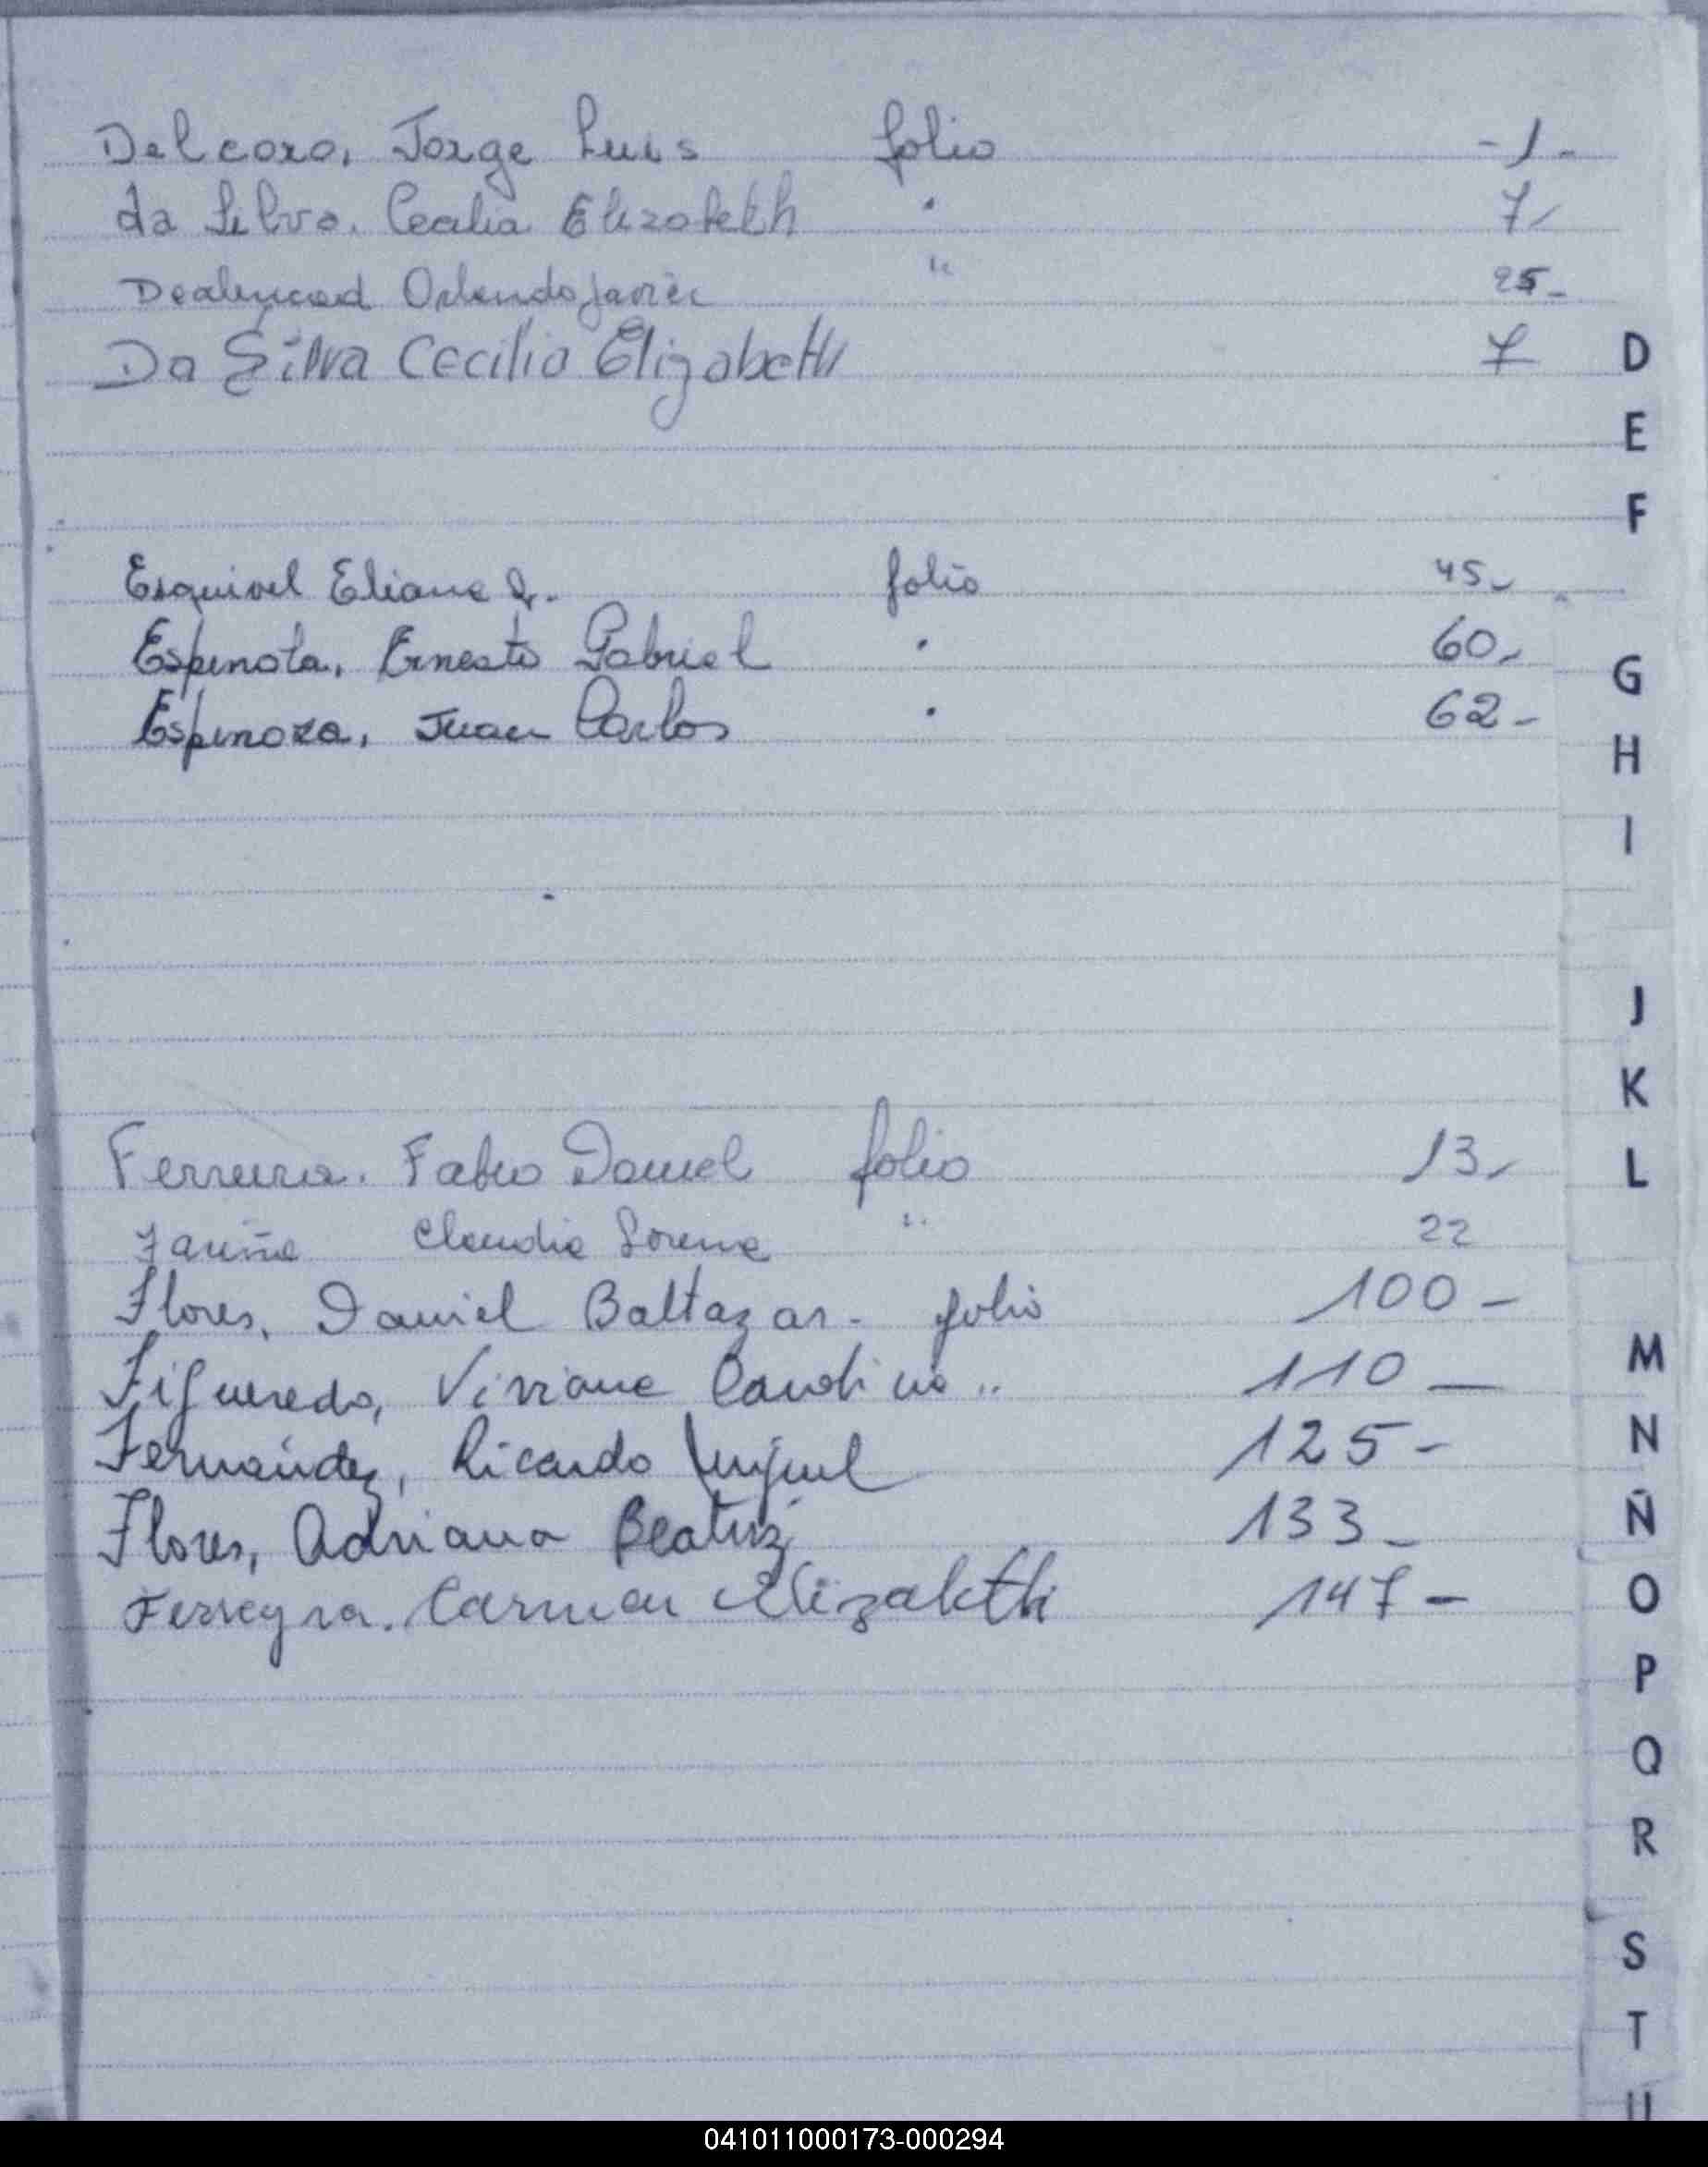 Delcoro, Jorge Luis folio -1-
da Silva, Cecilia Elizabeth " 7-
Orlando Javier " 25-
Da Silva Cecilia Elizabeth 7
Esquivel Eliana folio 45-
Espinola, Ernesto Gabriel " 60-
Espinoza, Juan Carlos " 62-
Ferreira. Fabio Daniel folio 13-
Fariña Claudia Lorena " 22
Flores, Daniel Baltazar - folio 100-
Figueredo, Viviana Carolina " 110-
Fernández, Ricardo Miguel 125-
Flores, Adriana Beatriz 133-
Ferreyra. Carmen Elizabeth 147-
D
E
F
G
H
I
J
K
L
M
N
Ñ
O
P
Q
R
S
T
U
041011000173-000294